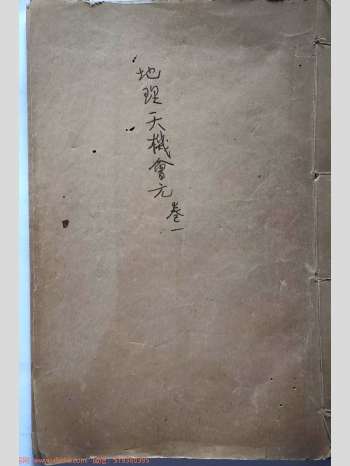 地理天機會元
卷一